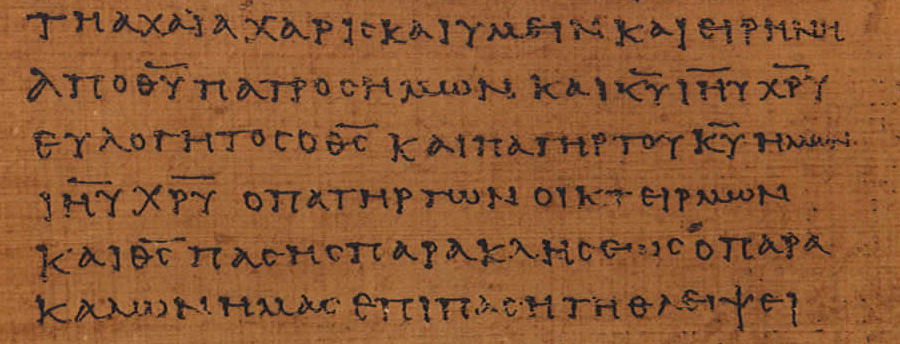 ΤΗ ΑΧΑΪΑ ΧΑΡΙϹ ΚΑΙ ΥΜΕΙΝ ΚΑΙ ΕΙΡΗΝΗ
ΑΠΟ Θ̅Υ̅ ΠΑΤΡΟϹ ΗΜΩΝ ΚΑΙ Κ̅Υ̅ Ι̅Η̅Υ̅ Χ̅Ρ̅Υ̅
ΕΥΛΟΓΗΤΟϹ Ο Θ̅Ϲ̅ ΚΑΙ ΠΑΤΗΡ ΤΟΥ Κ̅Υ̅ ΗΜΩΝ
Ι̅Η̅Υ̅ Χ̅Ρ̅Υ̅ Ο ΠΑΤΗΡ ΤΩΝ ΟΙΚΤΕΙΡΜΩΝ
ΚΑΙ Θ̅Ϲ̅ ΠΑϹΗϹ ΠΑΡΑΚΛΗϹΕΩϹ Ο ΠΑΡΑ
ΚΑΛΩΝ ΗΜΑϹ ΕΠΙ ΠΑϹΗ ΤΗ ΘΛΕΙΨΕΙ